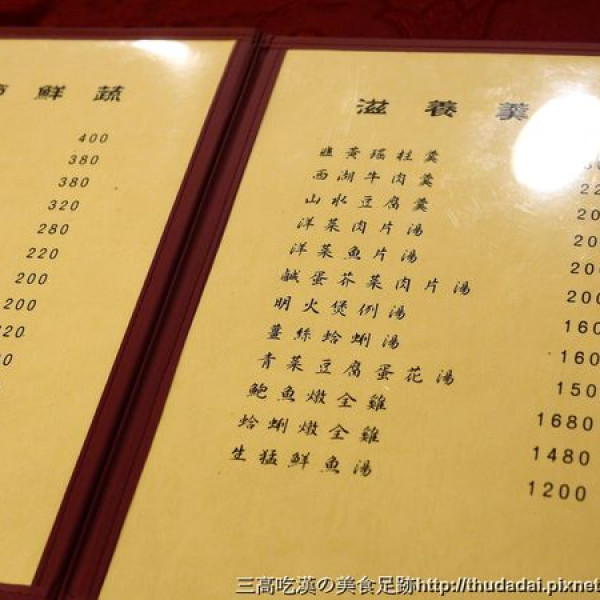 鮮蔬
400
380
380
320
280
220
200
200
220
滋養羹
韭黃瑤柱羹
西湖牛肉羹 22
山水豆腐羹 20
洋菜肉片湯 20
洋菜魚片湯 200
鹹蛋芥菜肉片湯 200
明火煲例湯 160
薑絲蛤蜊湯 160
青菜豆腐蛋花湯 150
鮑魚燉全雞 1680
蛤蜊燉全雞 1480
生猛鮮魚湯 1200
三高吃漢の美食足跡http://thudadai.pixnet